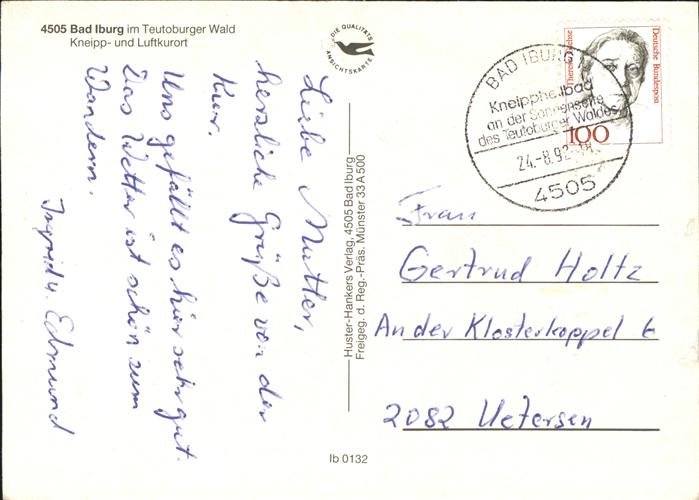 4505 Bad Iburg im Teutoburger Wald
Kneipp- und Luftkurort
DIE QUALITÄTS
ANSICHTSKARTE
Liebe Mutter,
herzliche Grüße von der
Kur.
Uns gefällt es hier sehr gut.
Das Wetter ist schön zum
Wandern.
Ingrid u. Edmund
Huster-Hankers Verlag, 4505 Bad Iburg
Freigeg. d. Reg.-Präs. Münster 33 A 500
Ib 0132
BAD IBURG
Kneippheilbad
an der Sonnenseite
des Teutoburger Waldes
24.-8.92
4505
Deutsche Bundespost
100
Frau
Gertrud Holtz
An der Klosterkoppel 6
2082 Uetersen